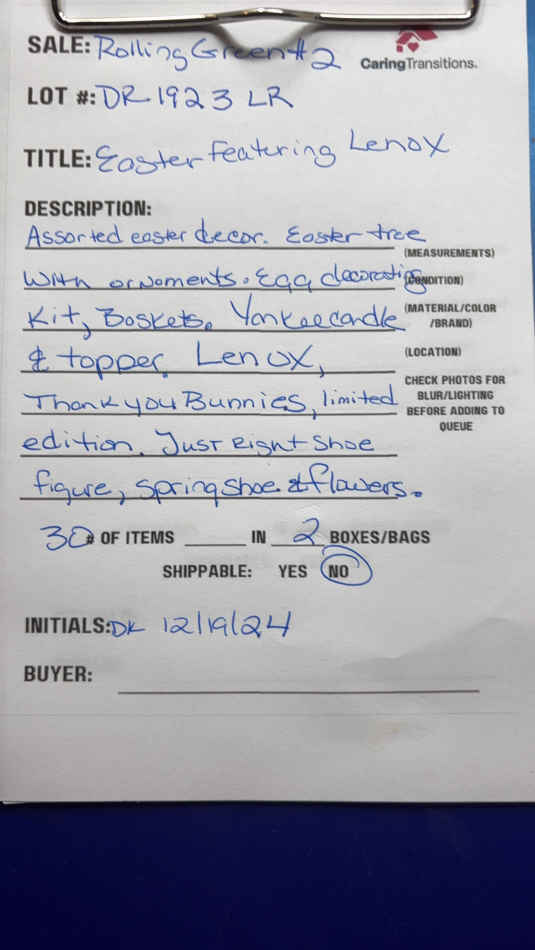 SALE: Rolling Green #2
CaringTransitions.
LOT #: DR 1923 LR
TITLE: Easter featering Lenox
DESCRIPTION:
Assorted easter decor. Easter tree
(MEASUREMENTS)
With ornoments. Egg decorating
(CONDITION)
Kit, Baskets. Yankeecandle
(MATERIAL/COLOR
/BRAND)
& topper. Lenox,
(LOCATION)
Thank you Bunnies, limited
CHECK PHOTOS FOR
BLUR/LIGHTING
BEFORE ADDING TO
QUEUE
edition. Just Right Shoe
figure, spring shoe & flowers.
30 # OF ITEMS ______ IN 2 BOXES/BAGS
SHIPPABLE: YES NO
INITIALS: DK 12/19/24
BUYER: